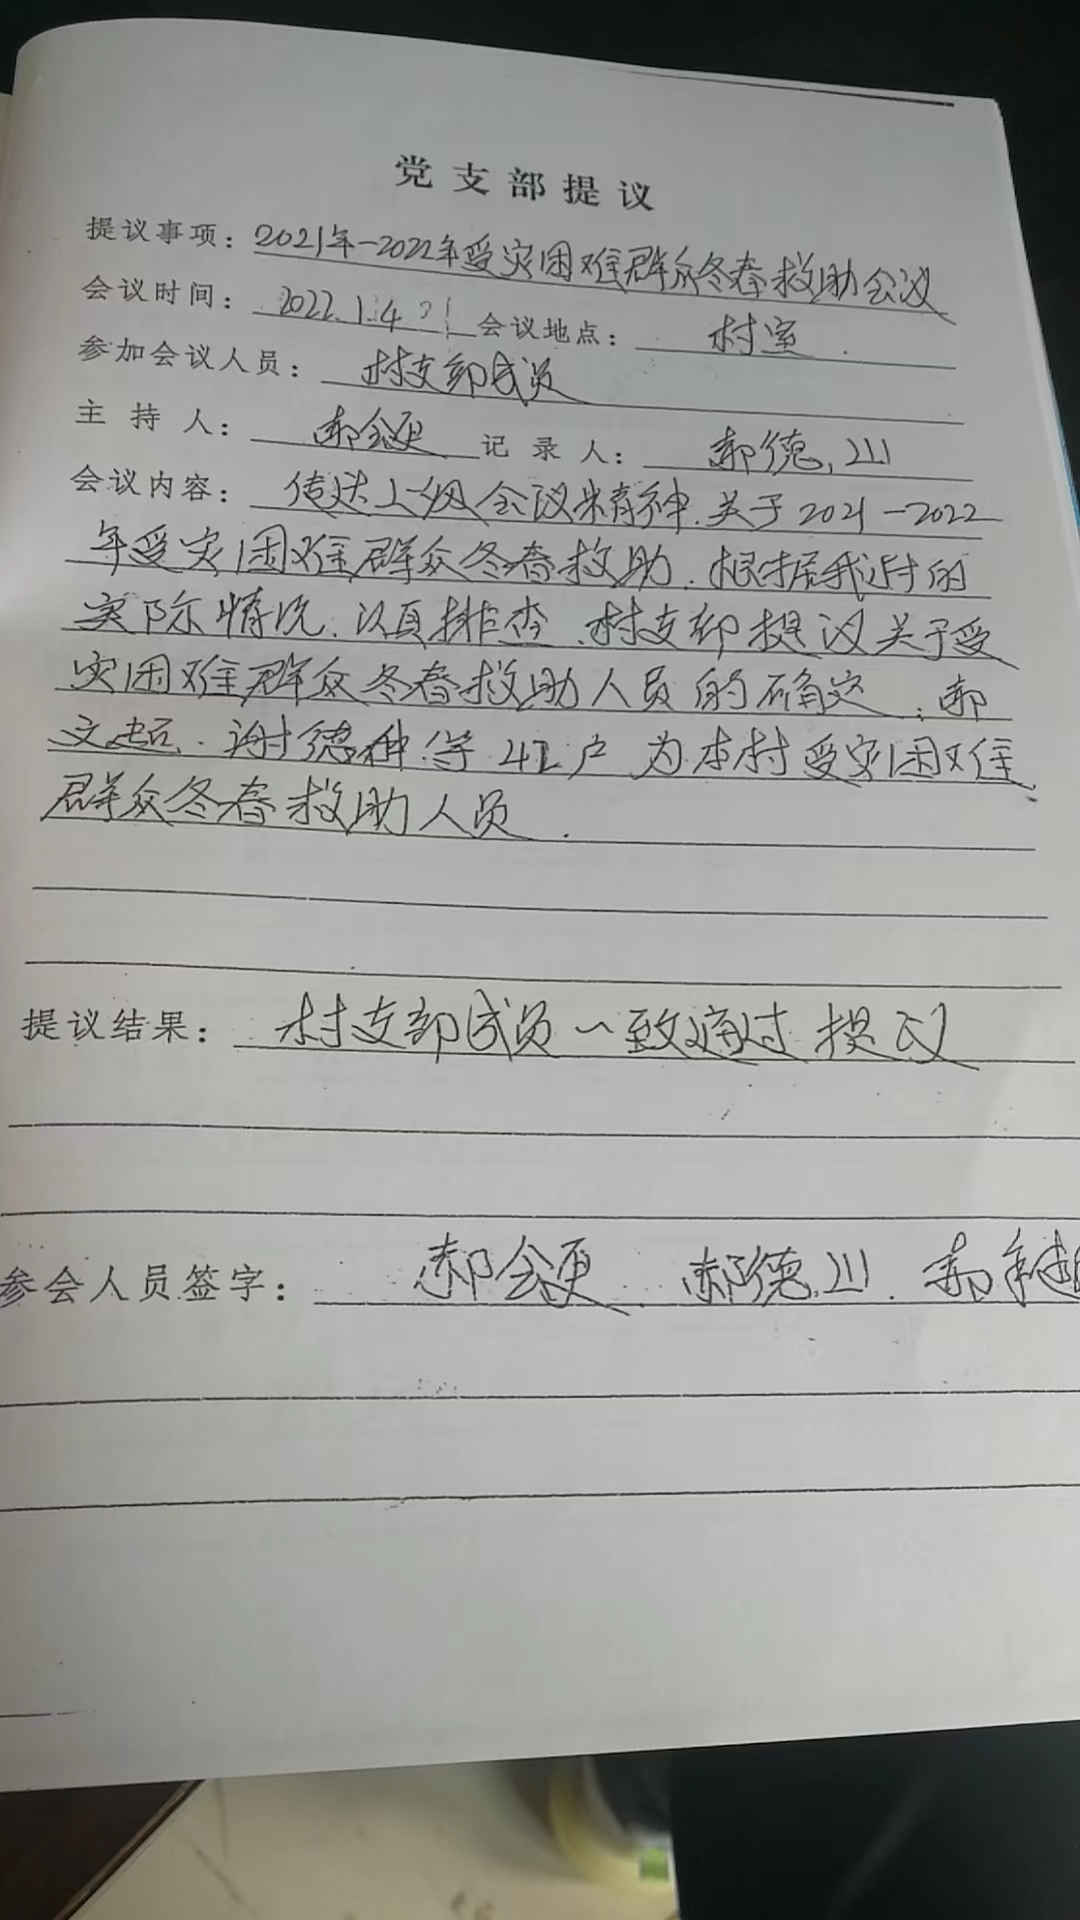 党支部提议
提议事项：2021年-2022年受灾困难群众冬春救助会议
会议时间：2022.1.4 会议地点：村室.
参加会议人员：村支部成员
主持人：郝会更 记录人：郝德川
会议内容：传达上级会议精神.关于2021-2022
年受灾困难群众冬春救助.根据我村的
实际情况.认真排查.村支部提议关于受
灾困难群众冬春救助人员的确定：郝
文起.谢德种等42户为本村受灾困难
群众冬春救助人员.
提议结果：村支部成员一致通过提议
参会人员签字：郝会更 郝德川 郝